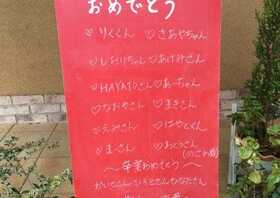 おめでとう
♡りくくん ♡さあやちゃん
♡しおりちゃん ♡あけみさん
♡HAYATOさん ♡あーちゃん
♡なおやさん ♡まきさん
♡えみさん ♡はやとくん
♡まーさん ♡おとうさん
〜卒業おめでとう〜